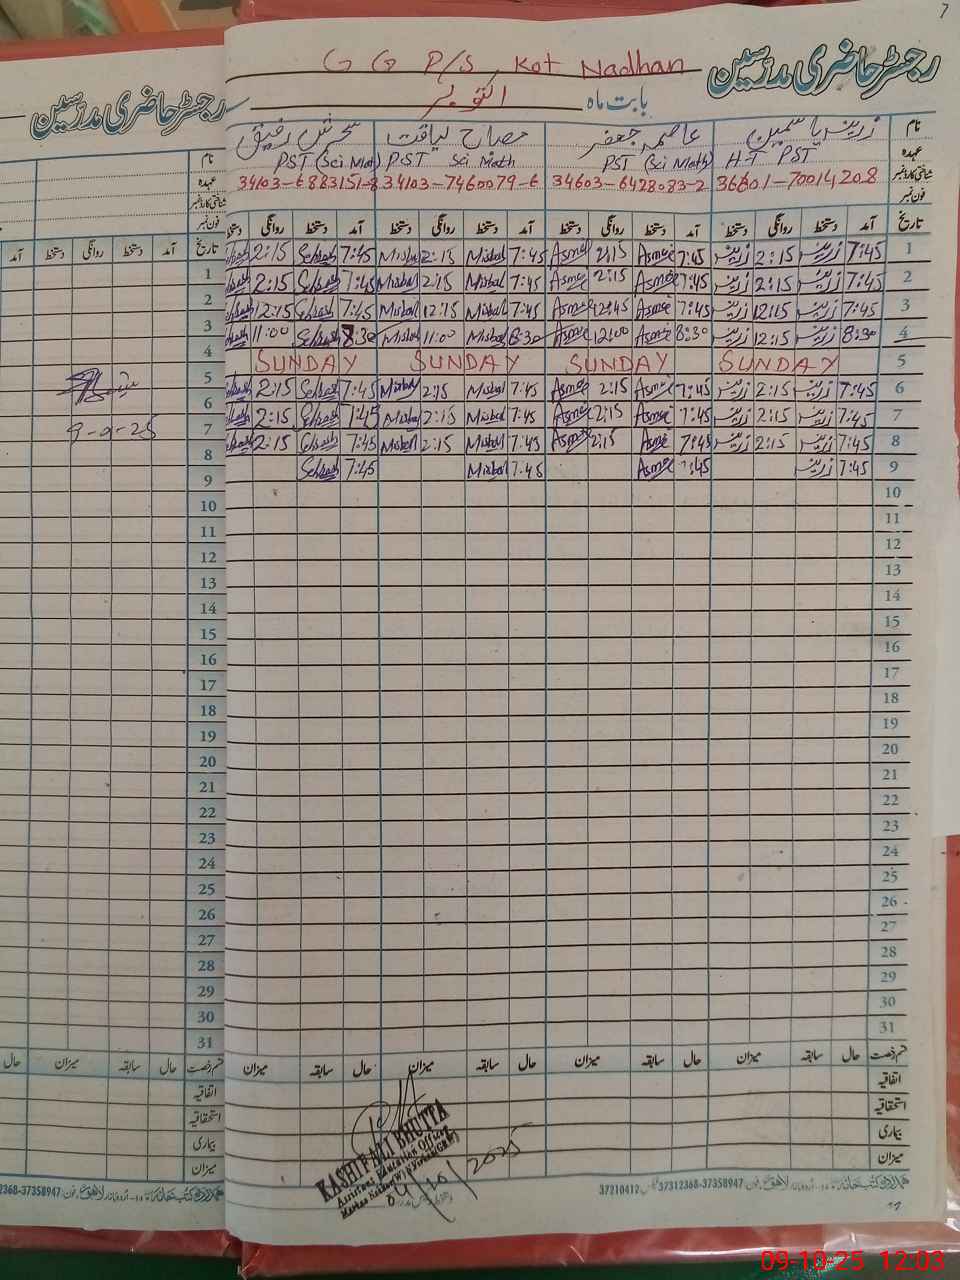 7
G G P/S Kot Nadhan
رجسٹر حاضری مدرسین
بابت ماہ اکتوبر
نام زرینہ یاسمین عاصمہ جعفر مصباح لیاقت سحرش رفیق
عہدہ H.T PST PST (Sci Math) PST Sci Math PST (Sci Mat)
شناختی کارڈ نمبر 34603-6428083-2 34103-7460079-6 34103-6883151-8
فون نمبر
تاریخ آمد دستخط روانگی دستخط آمد دستخط روانگی دستخط آمد دستخط روانگی دستخط آمد دستخط روانگی دستخط
1 7:45 زرینہ 2:15 زرینہ 7:45 Asma 2:15 Asma 7:45 Misbah 2:15 Misbah 7:45 Sehrash 2:15
2 7:45 زرینہ 2:15 زرینہ 7:45 Asma 2:15 Asma 7:45 Misbah 2:15 Misbah 7:45 Sehrash 2:15
3 7:45 زرینہ 12:15 زرینہ 7:45 Asma Asma 7:45 Misbah 12:15 Misbah 7:45 Sehrash 12:15
4 8:30 زرینہ 12:15 زرینہ 8:30 Asma 12:00 Asma 8:30 Misbah 11:00 Misbah 8:30 Sehrash 11:00
5 SUNDAY SUNDAY SUNDAY SUNDAY
6 7:45 زرینہ 2:15 زرینہ 7:45 Asma 2:15 Asma 7:45 Misbah 2:15 Misbah 7:45 Sehrash 2:15
7 7:45 زرینہ 2:15 زرینہ 7:45 Asma 2:15 Asma 7:45 Misbah 2:15 Misbah 7:45 Sehrash 2:15
8 7:45 زرینہ 2:15 زرینہ 7:45 Asma 2:15 Asma 7:45 Misbah 2:15 Misbah 7:45 Sehrash 2:15
9 7:45 زرینہ 7:45 Asma 7:45 Misbah 7:45 Sehrash
10
11
12
13
14
15
16
17
18
19
20
21
22
23
24
25
26
27
28
29
30
31
قسم رخصت حال سابقہ میزان حال سابقہ میزان حال سابقہ میزان حال سابقہ میزان
اتفاقیہ
استحقاقیہ
بیماری
میزان
KASHIF ALI BHUTTA
Assistant Education Officer
04/10/2025
37210412 37312368-37358947
رجسٹر حاضری مدرسین
نام
عہدہ
شناختی کارڈ نمبر
فون نمبر
تاریخ آمد دستخط روانگی دستخط آمد
1
2
3
4
5
6
7
8
9
10
11
12
13
14
15
16
17
18
19
20
21
22
23
24
25
26
27
28
29
30
31
قسم رخصت حال سابقہ میزان حال
اتفاقیہ
استحقاقیہ
بیماری
میزان
2368-37358947
09-10-25 12:03